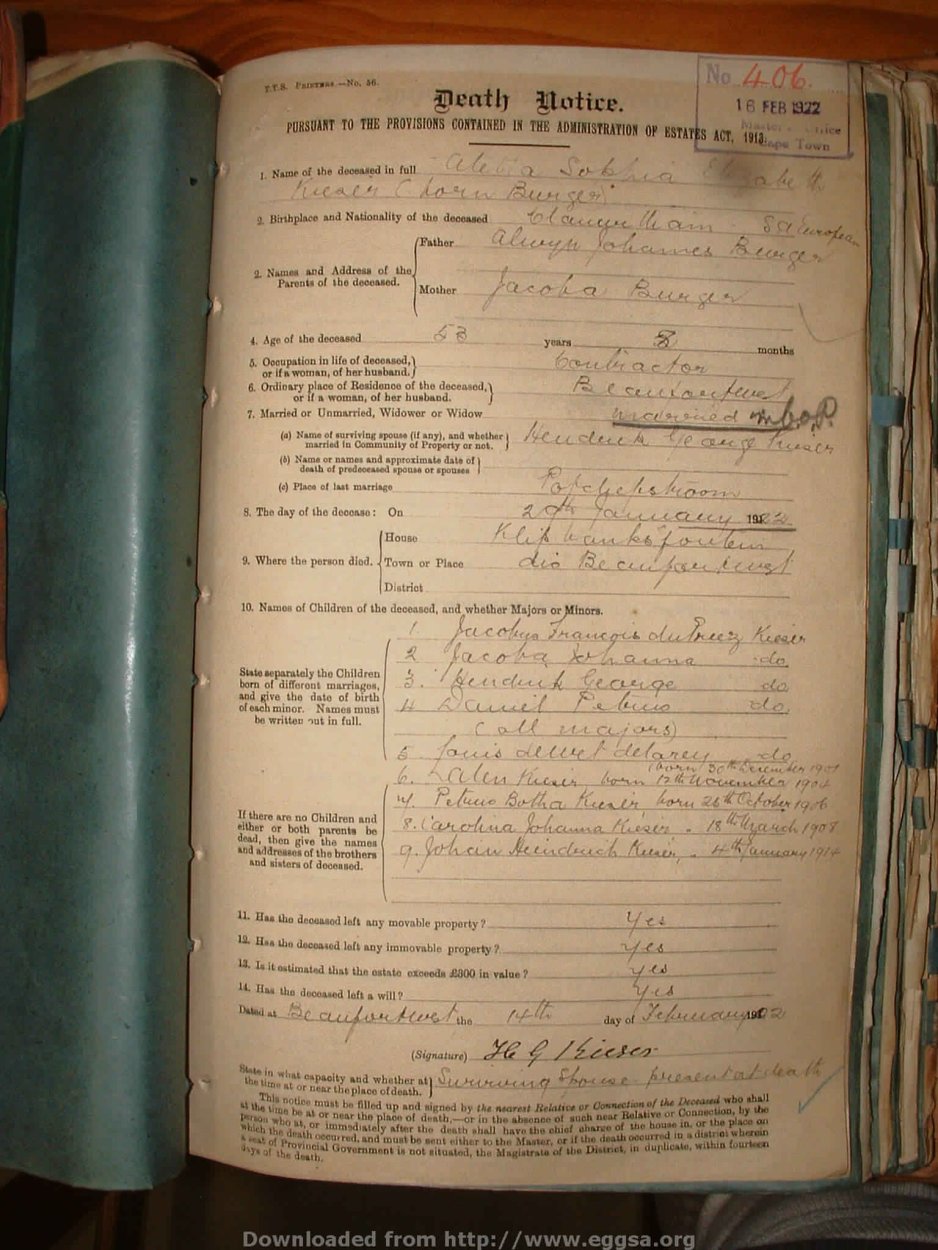 T.T.S. PRINTERS.—No. 56.
No 406
16 FEB 1922
Master's Office
Cape Town
Death Notice.
PURSUANT TO THE PROVISIONS CONTAINED IN THE ADMINISTRATION OF ESTATES ACT, 1913.
1. Name of the deceased in full Aletta Sophia Elizabeth
Kieser (born Burger)
2. Birthplace and Nationality of the deceased Clanwilliam SA European
Father Alwyn Johannes Burger
2. Names and Address of the Parents of the deceased.
Mother Jacoba Burger
4. Age of the deceased 53 years 3 months
5. Occupation in life of deceased, or if a woman, of her husband. Contractor
6. Ordinary place of Residence of the deceased, or if a woman, of her husband. Beaufort West
7. Married or Unmarried, Widower or Widow married
(a) Name of surviving spouse (if any), and whether married in Community of Property or not. Hendrik George Kieser
(b) Name or names and approximate date of death of predeceased spouse or spouses
(c) Place of last marriage Potchefstroom
8. The day of the decease: On 29th January 1922
House Klipbanksfontein
9. Where the person died. Town or Place dis Beaufort West
District
10. Names of Children of the deceased, and whether Majors or Minors.
1. Jacobus Francois du Preez Kieser
2 Jacoba Johanna do
3. Hendrik George do
4 Daniel Petrus do
(all majors)
5 Louis deWet delarey do
(born 30th December 1901
6. Kieser born 12th November 1904
7. Petrus Botha Kieser born 26th October 1906
8. Carolina Johanna Kieser, " 18th March 1908
9. Johan Heindrich Kieser, " 4th January 1914
State separately the Children
born of different marriages,
and give the date of birth
of each minor. Names must
be written out in full.
If there are no Children and
either or both parents be
dead, then give the names
and addresses of the brothers
and sisters of deceased.
11. Has the deceased left any movable property? Yes
12. Has the deceased left any immovable property? yes
13. Is it estimated that the estate exceeds £300 in value? yes
14. Has the deceased left a will? yes
Dated at Beaufort West the 14th day of February 1922
(Signature) H G Kieser
State in what capacity and whether at the time at or near the place of death. Surviving Spouse present at death
This notice must be filled up and signed by the nearest Relative or Connection of the Deceased who shall
at the time be at or near the place of death,—or in the absence of such near Relative or Connection, by the
person who at, or immediately after the death shall have the chief charge of the house in, or the place on
which the death occurred, and must be sent either to the Master, or if the death occurred in a district wherein
a seat of Provincial Government is not situated, the Magistrate of the District, in duplicate, within fourteen
days of the death.
Downloaded from http://www.eggsa.org